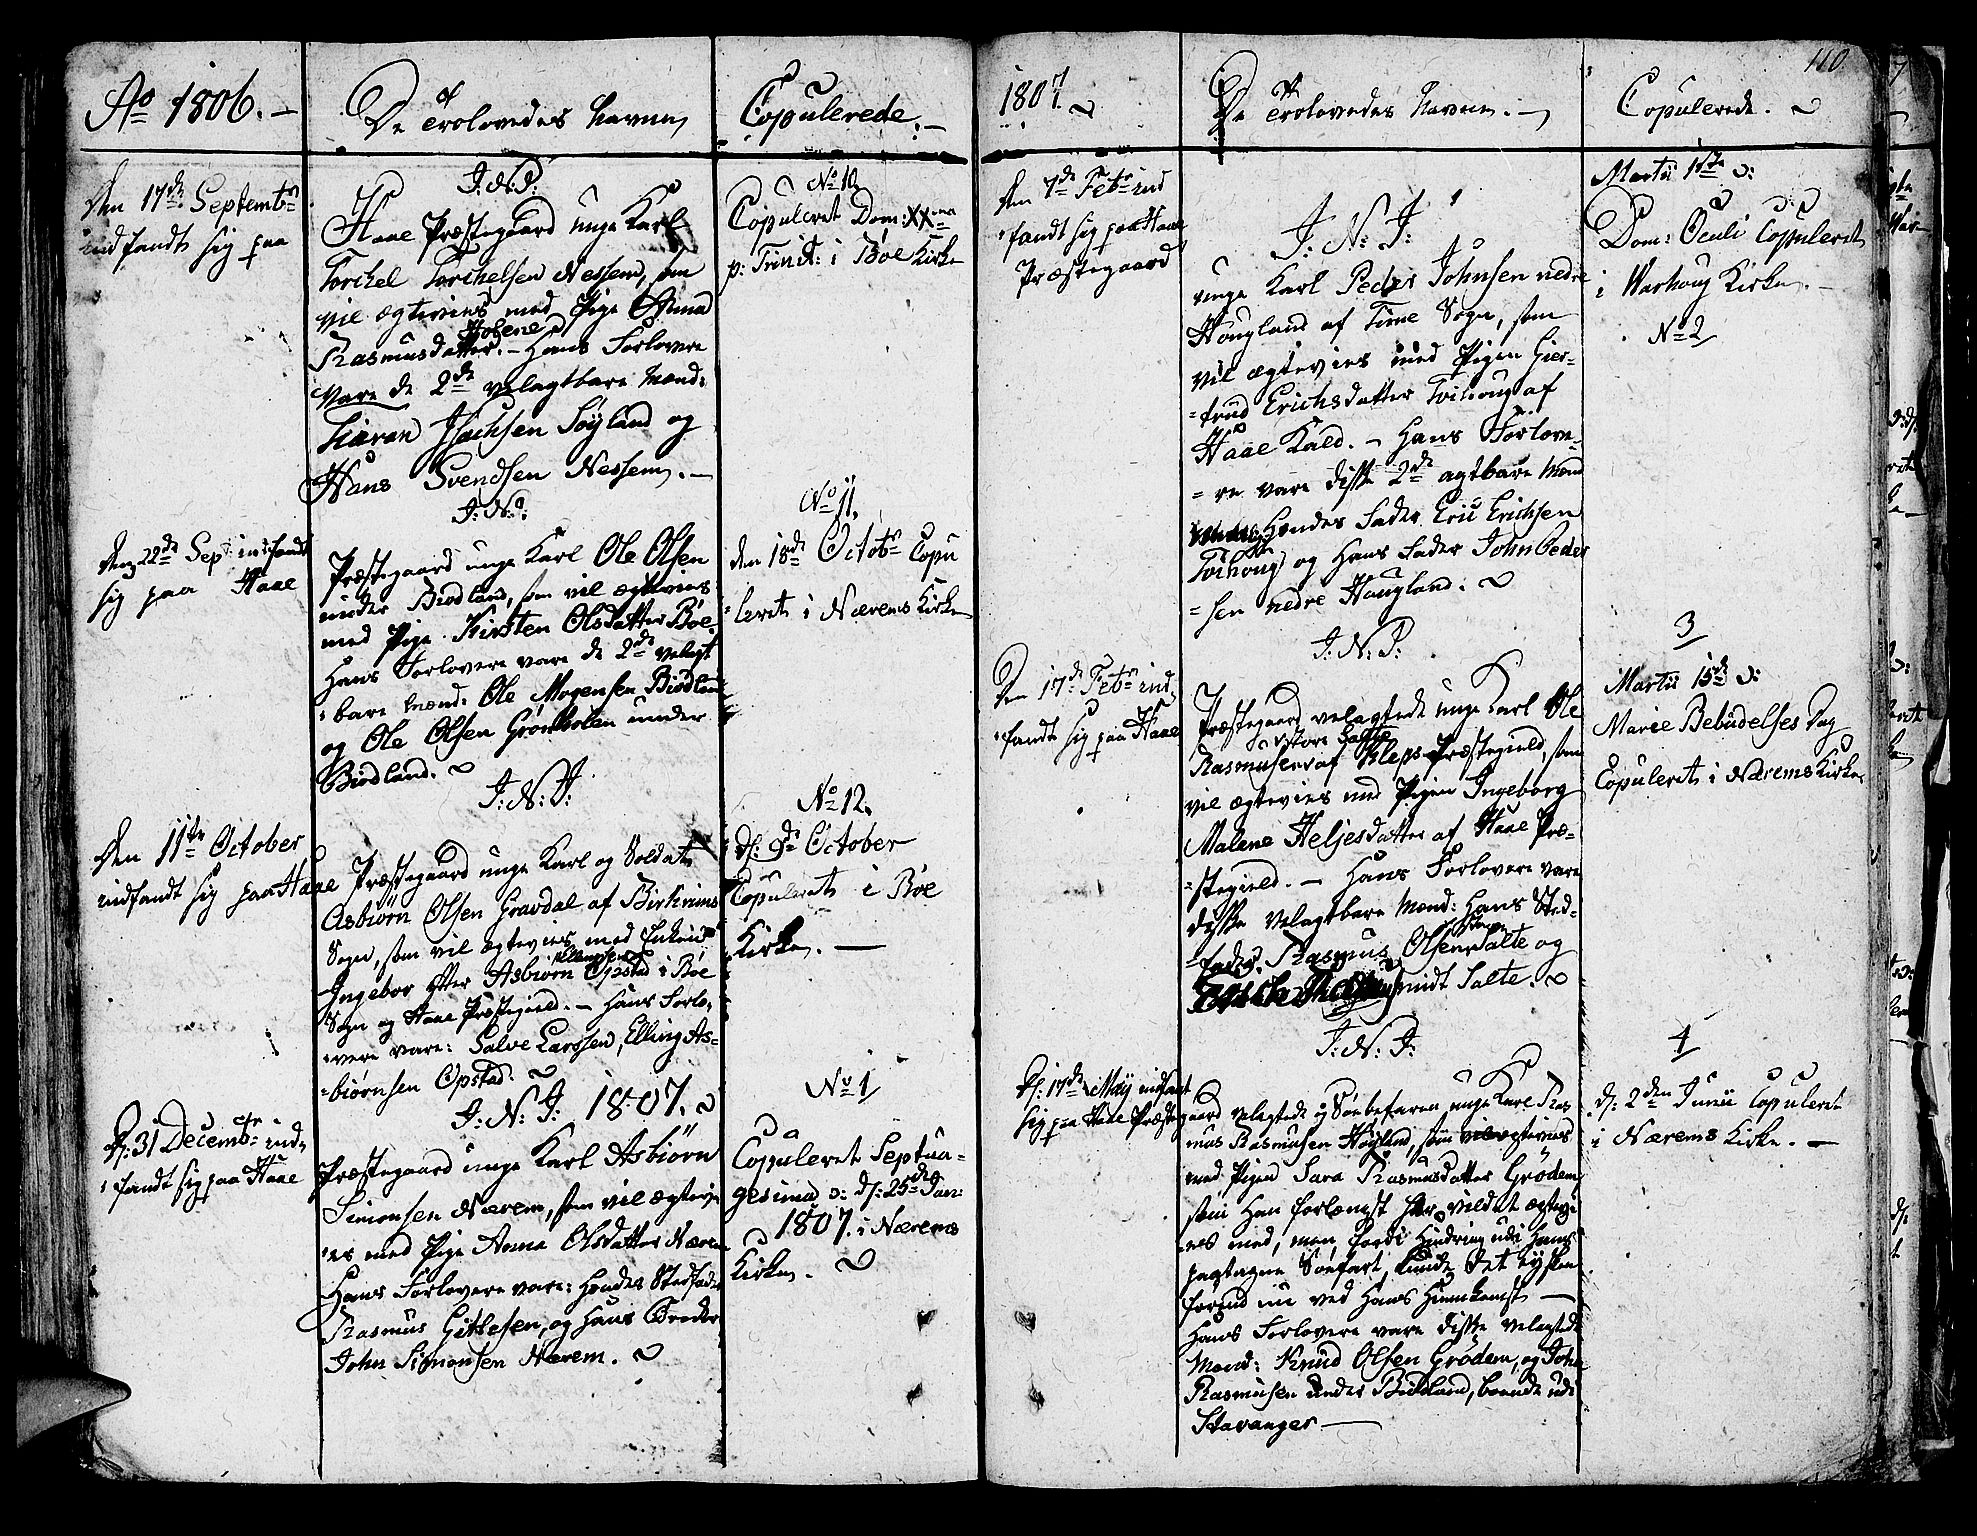 Ao 1806. –
De Trolovedes Navne
Copulerede. –
Den 17de Septembr
indfandt sig paa
J: N: J:
Haae Præstegaard unge Karl
Torchel Torchelsen Nessem, som
vil ægtevies med Pige Anna
Holene
Rasmusdatter. – Hans Forlovere
vare de 2de velagtbare Mænd:
Tiæran Isachsen Söyland og
Hans Svendsen Nessem. –
No 10
Copuleret Dom: XXma
p: Trinit: i Böe Kirke
J: N: J:
Den 22de Sept: indfandt
sig paa Haae
Præstegaard unge Karl Ole Olsen
under Biodland, som vil ægtevies
med Pige Kirsten Olsdatter Böe
Hans Forlovere vare de 2de velagt
bare Mænd: Ole Mogensen Biodland
og Ole Olsen under
Biodland.
No 11.
den 18de Octobr Copu
leret i Nærems Kirke
J: N: J:
Den 11te October
indfandt sig paa Haae
Præstegaard unge Karl og Soldat
Asbiörn Olsen Gravdal af Birkrims
Sogn, som vil ægtevies med Enken
Ellingsen
Ingebor efter Asbiörn Opstad i Böe
Sogn og Haae Præstegield. – Hans Forlo-
vere vare: Salve Larssen, Elling As-
biörnsen Opstad.
No 12.
d: 9de October
Copuleret i Böe
Kirke. –
J: N: J: 1807.
D: 31 Decembr ind-
fandt sig paa Haae
Præstegaard unge Karl Asbiörn
Simonsen Nærem, som vil ægtevi
es med Pige Anna Olsdatter Nærem
Hans Forlovere vare: Hendes Stedfader
Rasmus Gitlesen, og Hans Broder
John Simonsen Nærem.
No 1
Copuleret Septua-
gesima o: d: 25de Jan:
1807. i Nærems
Kirke.
110
1807.
De Trolovedes Navne. –
Copulerede.
Den 7de Febr ind
fandt sig paa Haae
Præstegaard
J: N: J:
unge Karl Peder Johnsen nedre
Hougland af Time Sogn, som
vil ægtevies med Pigen Gier-
trud Erichsdatter Tvihoug af
Haae Kald. – Hans Forlove-
re vare disse 2de agtbare Mænd
Hendes Fader Eric Erichsen
Tvihoug og Hans Fader John Peder
sen nedre Hougland.
Martii 1ste o:
Dom: Oculi Copuleret
i Warhoug Kirke. –
No 2
J: N: J:
Den 17de Febr ind
fandt sig paa Haae
Præstegaard velagtede unge Karl Ole
store Salte
Rasmusen af Kleps Præstegield, som
vil ægtevies med Pigen Ingeborg
Malene Heljesdatter af Haae Præ-
stegield. – Hans Forlovere vare
disse velagtbare Mænd: Hans Sted-
fader Rasmus Olsen Salte og
midt Salte.
3
Martii 15de o:
Mariæ Bebudelses Dag
Copuleret i Nærems Kirke
J: N: J:
D: 17de Maÿ indfandt
sig paa Haae Præstegaard velagtede og Söebefaren unge Karl Ras
mus Rasmusen Höyland, som vil ægtevies
med Pigen Sara Rasmusdatter Grödem,
som Han forlængst har vildet ægtevi
es med, men fordi Hindring udi Hans
paatagne Söefart, kunde det ey skee
forend nu ved Hans Hiemkomst –
Hans Forlovere vare disse velagtede
Mænd: Knud Olsen Grödem, og John
Rasmusen under Biodland, boende udi
Stavanger –
4
d: 2den Junii Copuleret
i Nærems Kirke. –